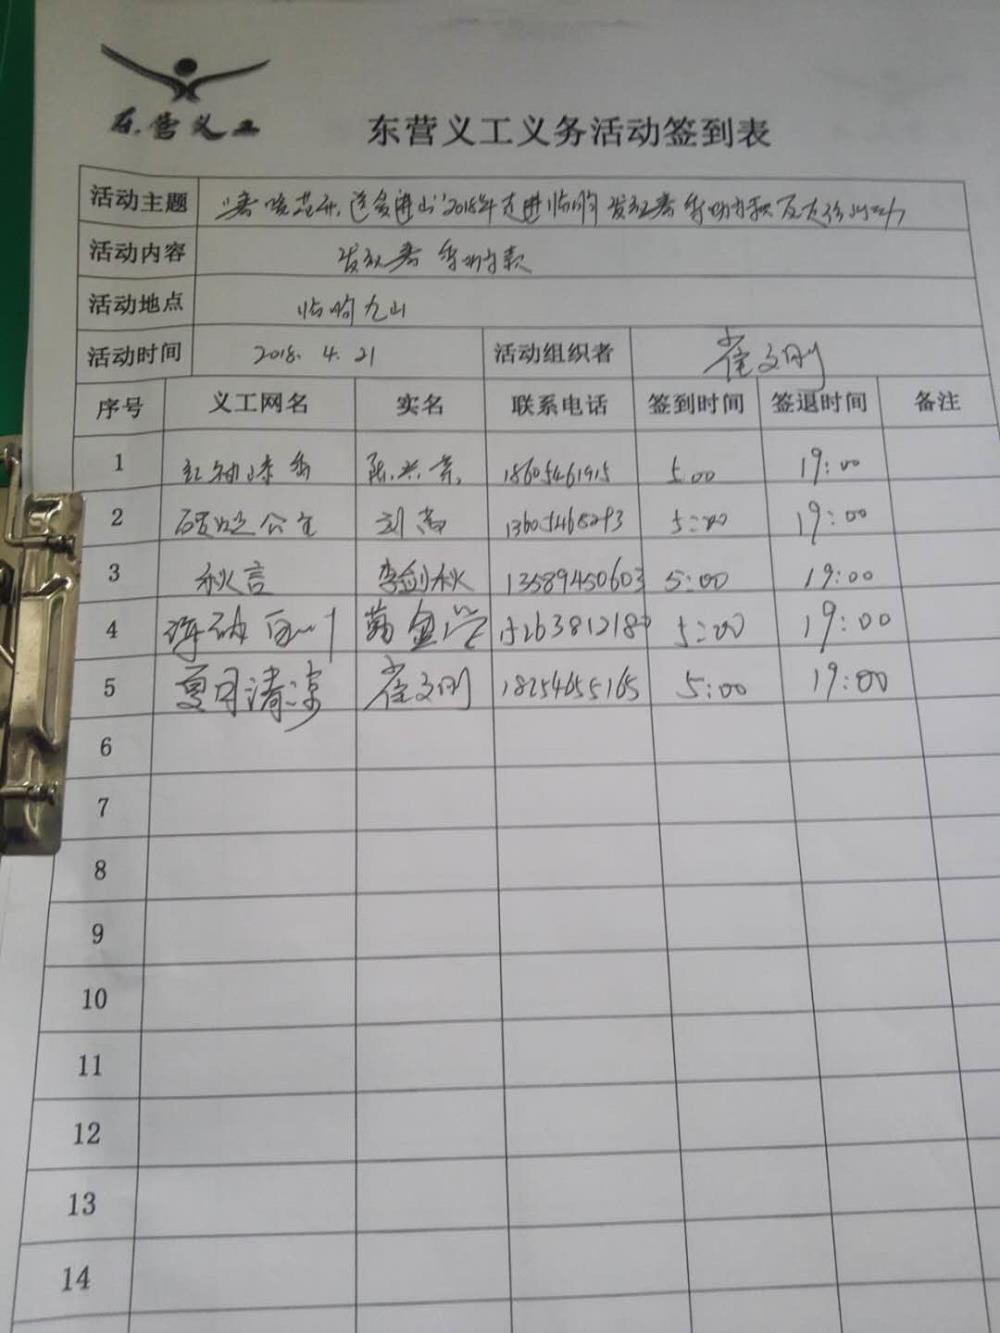 东营义工
东营义工义务活动签到表
活动主题 春暖花开, 2018年走进临朐发放春季助学款
活动内容 发放春季助学款
活动地点 临朐九山
活动时间 2018.4.21 活动组织者 崔文刚
序号 义工网名 实名 联系电话 签到时间 签退时间 备注
1 红袖添香 陈兴荣 18605461915 5:00 19:00
2 公主 刘 5:00 19:00
3 秋言 李剑秋 13589450603 5:00 19:00
4 5:00 19:00
5 夏日清凉 崔文刚 18254655165 5:00 19:00
6
7
8
9
10
11
12
13
14